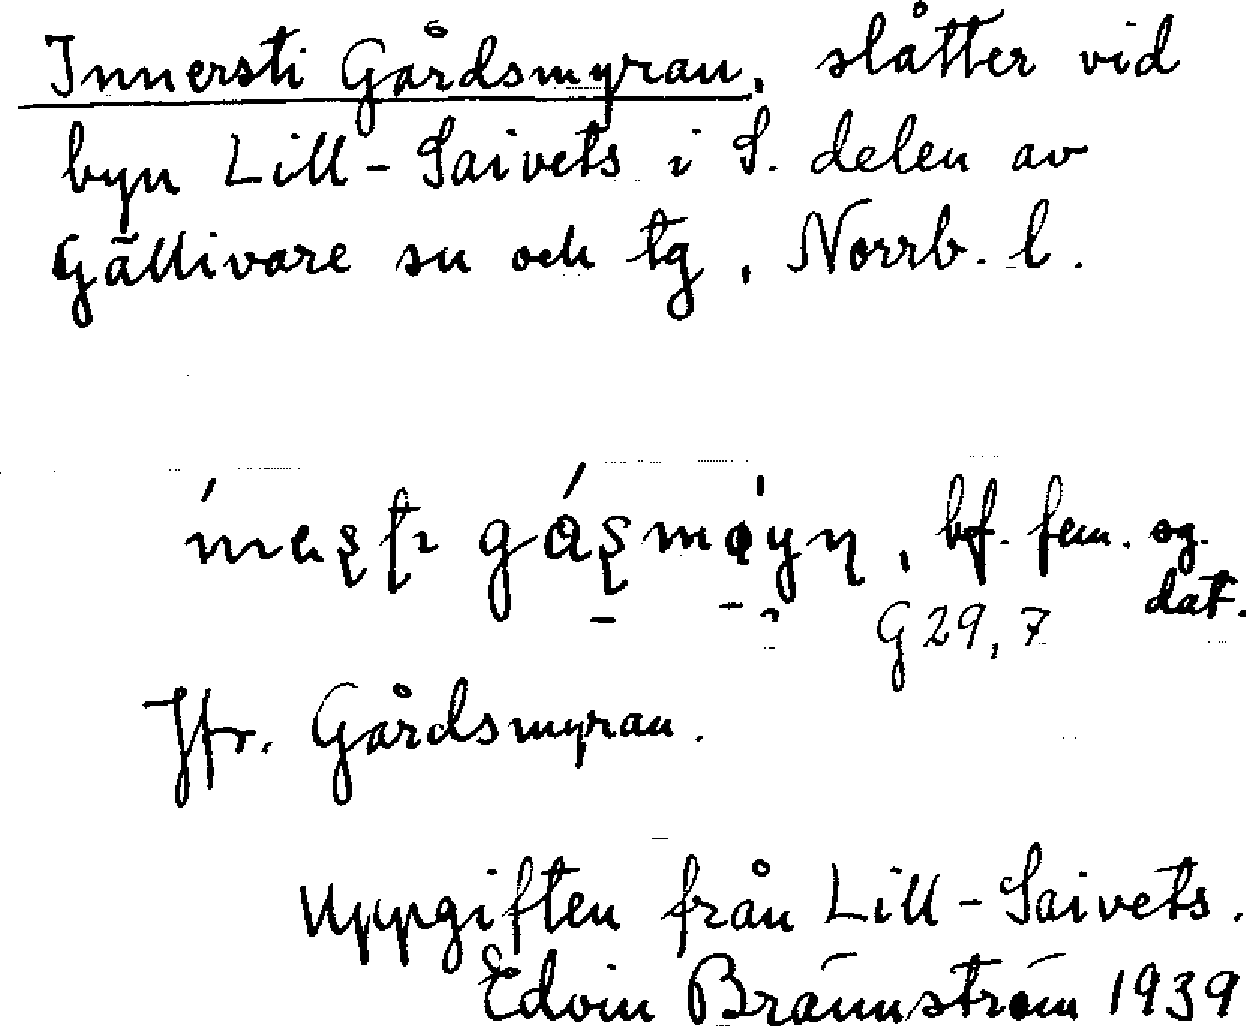 Innersti Gårdsmyran, slåtter vid
byn Lill-Saivets i S. delen av
Gällivare sn och tg, Norrb. l.
bf. fem. sg.
dat.
G 29, 7
Jfr. Gårdsmyran.
Uppgiften från Lill-Saivets.
Edvin Brännström 1939